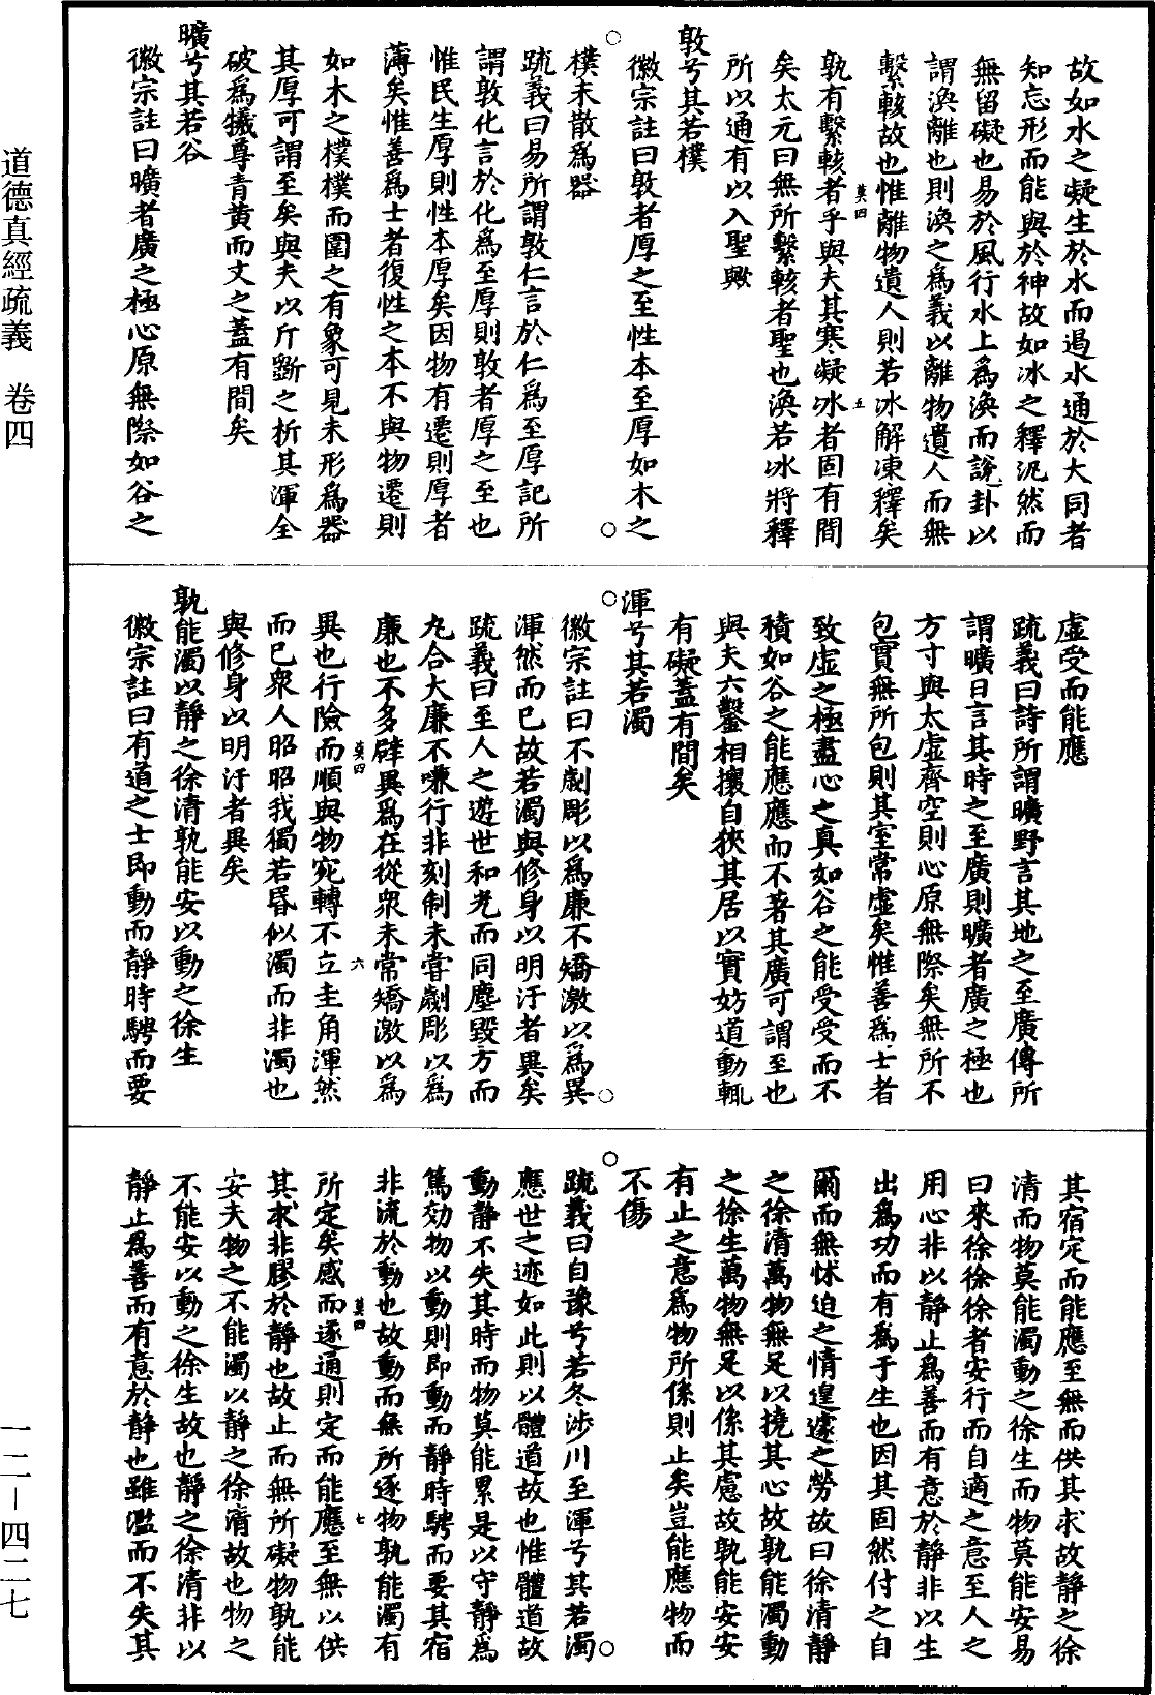 故如水之凝生於水而遏水通於大同者
知忘形而能與於神故如冰之釋泥然而
無留礙也易於風行水上為渙而說卦以
謂渙離也則渙之為義以離物遺人而無
繫輆故也惟離物遺人則若冰解凍釋矣
孰有繫輆者乎與夫其寒凝冰者固有間
矣太元曰無所繫輆者聖也渙若冰將釋
所以通有以入聖歟
敦兮其若樸
徽宗註曰敦者厚之至性本至厚如木之
樸未散為器
疏義曰易所謂敦仁言於仁為至厚記所
謂敦化言於化為至厚則敦者厚之至也
惟民生厚則性本厚矣因物有遷則厚者
薄矣惟善為士者復性之本不與物遷則
如木之樸樸而圍之有象可見未形為器
其厚可謂至矣與夫以斤斲之析其渾全
破為犧尊青黃而文之蓋有間矣
曠兮其若谷
徽宗註曰曠者廣之極心原無際如谷之
莫四 五
虛受而能應
疏義曰詩所謂曠野言其地之至廣傳所
謂曠日言其時之至廣則曠者廣之極也
方寸與太虛齊空則心原無際矣無所不
包實無所包則其室常虛矣惟善為士者
致虛之極盡心之真如谷之能受受而不
積如谷之能應應而不著其廣可謂至也
與夫六鑿相攘自狹其居以實妨道動輒
有礙蓋有間矣
渾兮其若濁
徽宗註曰不劌彫以為廉不矯激以為異
渾然而已故若濁與修身以明汙者異矣
疏義曰至人之遊世和光而同塵毀方而
瓦合大廉不嗛行非刻制未嘗劌彫以為
廉也不多辟異為在從眾未常矯激以為
異也行險而順與物宛轉不立圭角渾然
而已眾人昭昭我獨若昏似濁而非濁也
與修身以明汙者異矣
孰能濁以靜之徐清孰能安以動之徐生
徽宗註曰有道之士即動而靜時騁而要
莫四 六
其宿定而能應至無而供其求故靜之徐
清而物莫能濁動之徐生而物莫能安易
曰來徐徐徐者安行而自適之意至人之
用心非以靜止為善而有意於靜非以生
出為功而有為于生也因其固然付之自
爾而無怵迫之情遑遽之勞故曰徐清靜
之徐清萬物無足以撓其心故孰能濁動
之徐生萬物無足以係其慮故孰能安安
有止之意為物所係則止矣豈能應物而
不傷
疏義曰自豫兮若冬涉川至渾兮其若濁
應世之迹如此則以體道故也惟體道故
動靜不失其時而物莫能累是以守靜為
篤効物以動則即動而靜時騁而要其宿
非流於動也故動而無所逐物孰能濁有
所定矣感而遂通則定而能應至無以供
其求非膠於靜也故止而無所礙物孰能
安夫物之不能濁以靜之徐清故也物之
不能安以動之徐生故也靜之徐清非以
靜止為善而有意於靜也雖濫而不失其
莫四 七
道德真經疏義　卷四
一二－四二七